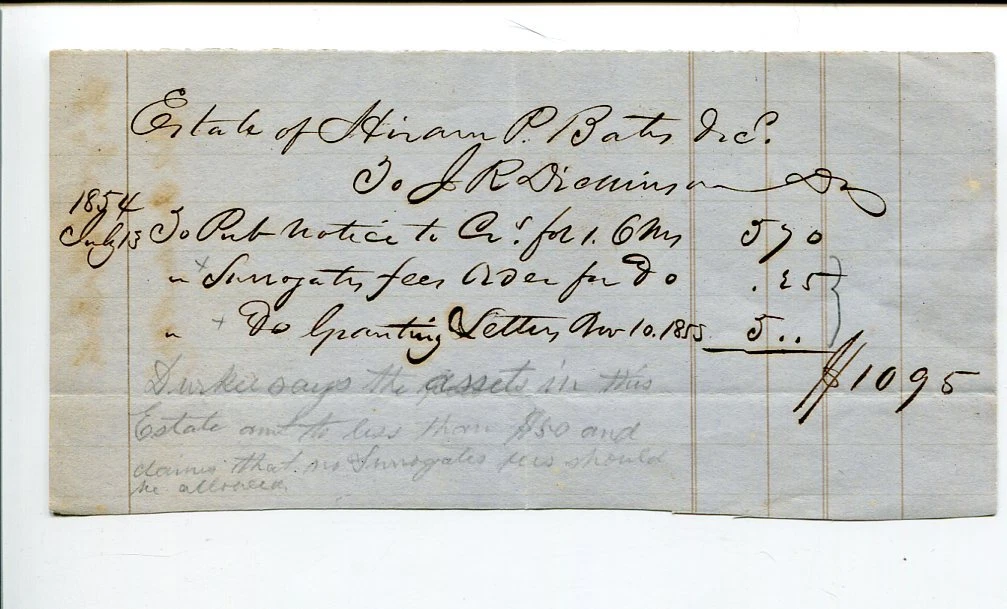 Estate of Hiram P. Bates Decd.
To J R Dickinson Dr
1854
July 13 To Pub Notice to Crs. for 1. 6 Ms 5 70
" + Surrogates fees Order for Do . 25
" + Do Granting Letters Nov 10. 1855 5 ..
$10 95
Durkee says the assets in this
Estate amt to less than $50 and
claims that no Surrogates fees should
be allowed.